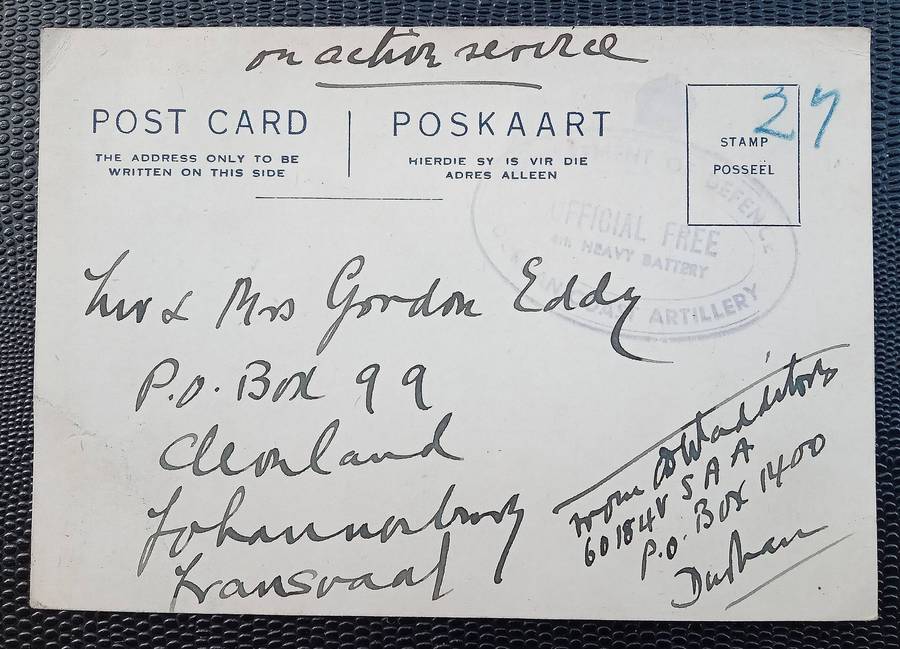 on active service
POST CARD
THE ADDRESS ONLY TO BE
WRITTEN ON THIS SIDE
POSKAART
HIERDIE SY IS VIR DIE
ADRES ALLEEN
STAMP
POSSEËL
27
DEFENCE
OFFICIAL FREE
HEAVY BATTERY
COAST ARTILLERY
Mr & Mrs Gordon Eddy
P.O. Box 99
Cleveland
Johannesburg
Transvaal
From
601848V SAA
P.O. Box 1400
Durban